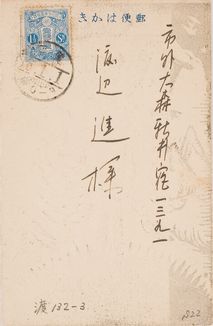 郵便はかき
1½ Sn
市外大森新井宿一三九一
渡辺進様
渡 132-3
1322